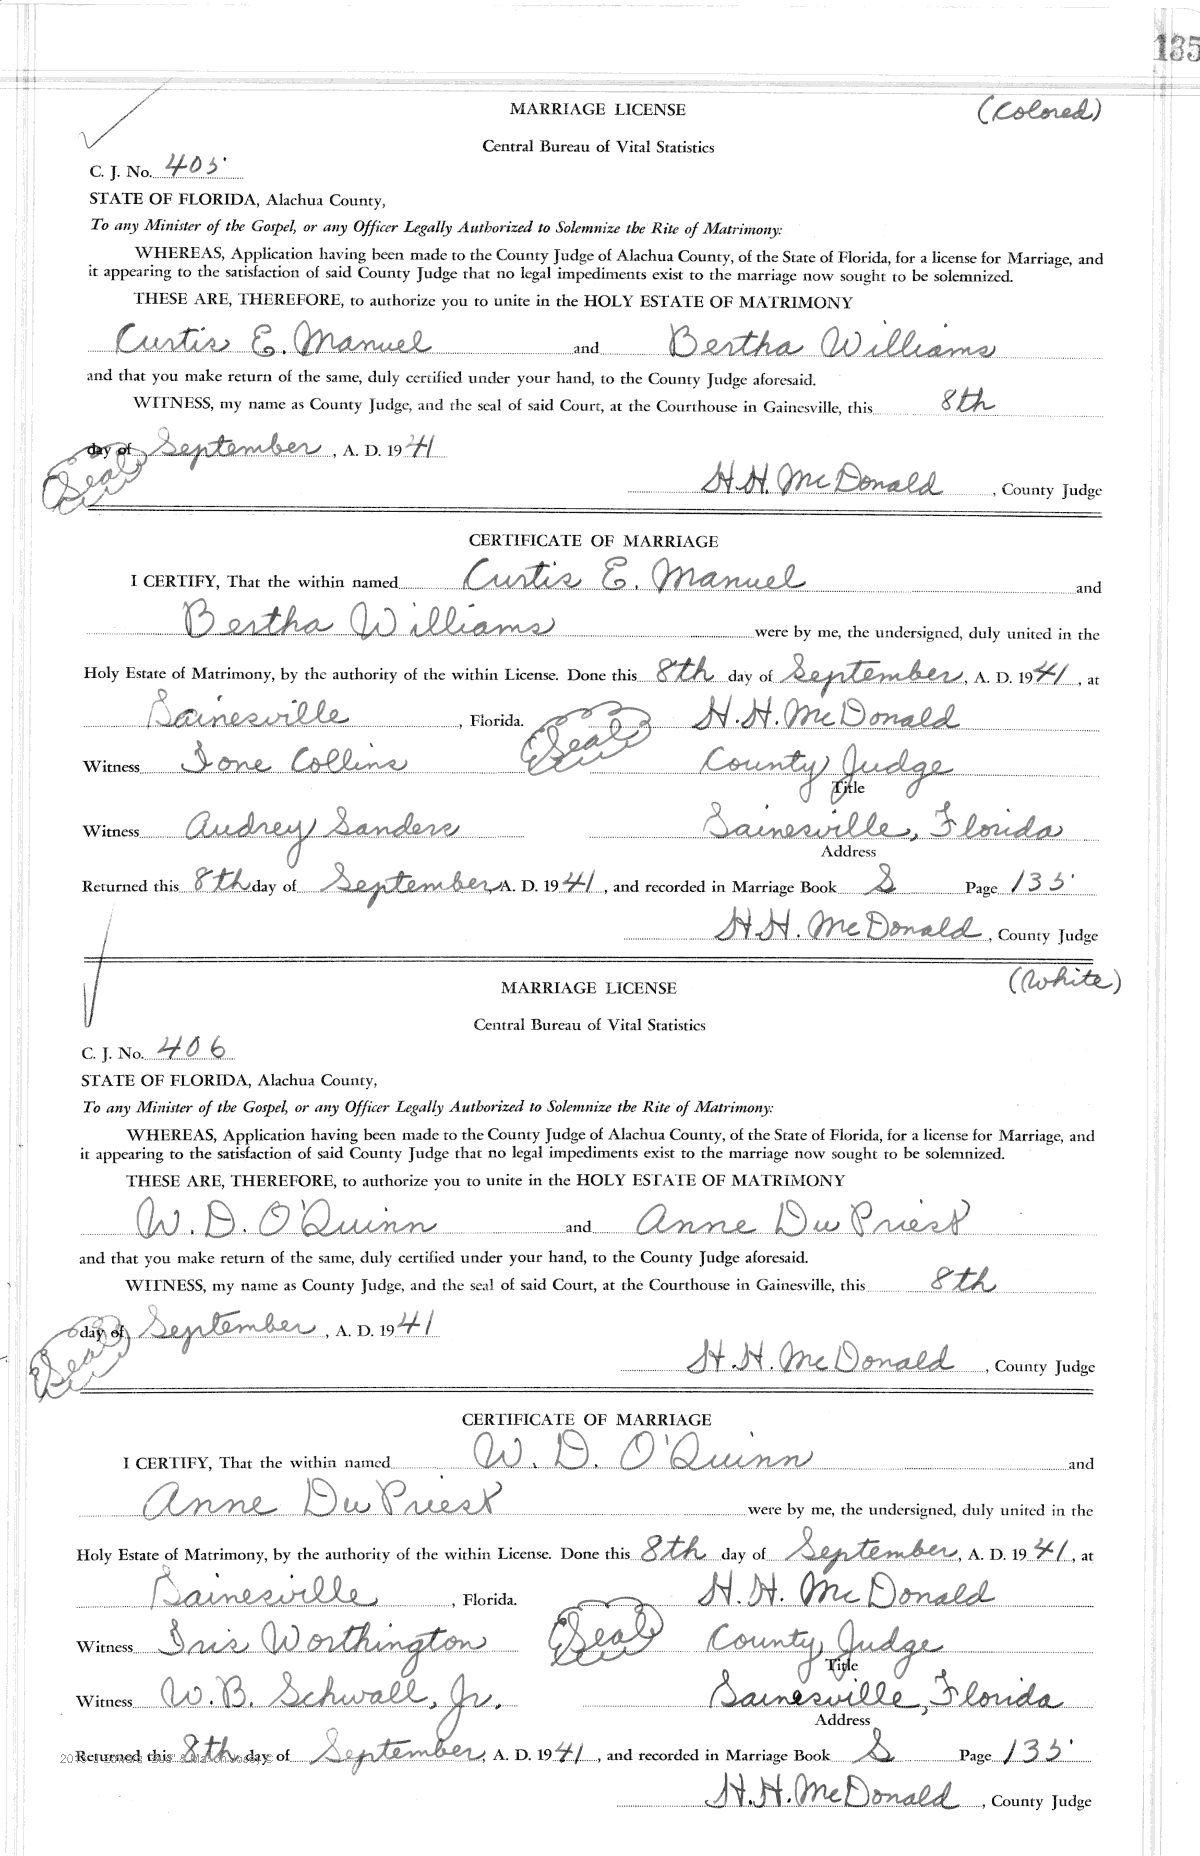 135
MARRIAGE LICENSE (Colored)
Central Bureau of Vital Statistics
C. J. No. 405
STATE OF FLORIDA, Alachua County,
To any Minister of the Gospel, or any Officer Legally Authorized to Solemnize the Rite of Matrimony:
WHEREAS, Application having been made to the County Judge of Alachua County, of the State of Florida, for a license for Marriage, and
it appearing to the satisfaction of said County Judge that no legal impediments exist to the marriage now sought to be solemnized.
THESE ARE, THEREFORE, to authorize you to unite in the HOLY ESTATE OF MATRIMONY
Curtis E. Manuel and Bertha Williams
and that you make return of the same, duly certified under your hand, to the County Judge aforesaid.
WITNESS, my name as County Judge, and the seal of said Court, at the Courthouse in Gainesville, this 8th
day of September, A. D. 1941
Seal H.H. McDonald, County Judge
CERTIFICATE OF MARRIAGE
I CERTIFY, That the within named Curtis E. Manuel and
Bertha Williams were by me, the undersigned, duly united in the
Holy Estate of Matrimony, by the authority of the within License. Done this 8th day of September, A. D. 1941, at
Gainesville, Florida. Seal H.H. McDonald
Witness Ione Collins County Judge
Title
Witness Audrey Sanders Gainesville, Florida
Address
Returned this 8th day of September A. D. 1941, and recorded in Marriage Book S Page 135
H.H. McDonald, County Judge
MARRIAGE LICENSE (White)
Central Bureau of Vital Statistics
C. J. No. 406
STATE OF FLORIDA, Alachua County,
To any Minister of the Gospel, or any Officer Legally Authorized to Solemnize the Rite of Matrimony:
WHEREAS, Application having been made to the County Judge of Alachua County, of the State of Florida, for a license for Marriage, and
it appearing to the satisfaction of said County Judge that no legal impediments exist to the marriage now sought to be solemnized.
THESE ARE, THEREFORE, to authorize you to unite in the HOLY ESTATE OF MATRIMONY
W. D. O'Quinn and Anne DuPriest
and that you make return of the same, duly certified under your hand, to the County Judge aforesaid.
WITNESS, my name as County Judge, and the seal of said Court, at the Courthouse in Gainesville, this 8th
day of September, A. D. 1941
Seal H.H. McDonald, County Judge
CERTIFICATE OF MARRIAGE
I CERTIFY, That the within named W. D. O'Quinn and
Anne DuPriest were by me, the undersigned, duly united in the
Holy Estate of Matrimony, by the authority of the within License. Done this 8th day of September, A. D. 1941, at
Gainesville, Florida. H. H. McDonald
Witness Iris Worthington Seal County Judge
Title
Witness W. B. Schwall, Jr. Gainesville, Florida
Address
Returned this 8th day of September, A. D. 1941, and recorded in Marriage Book S Page 135
H.H. McDonald, County Judge